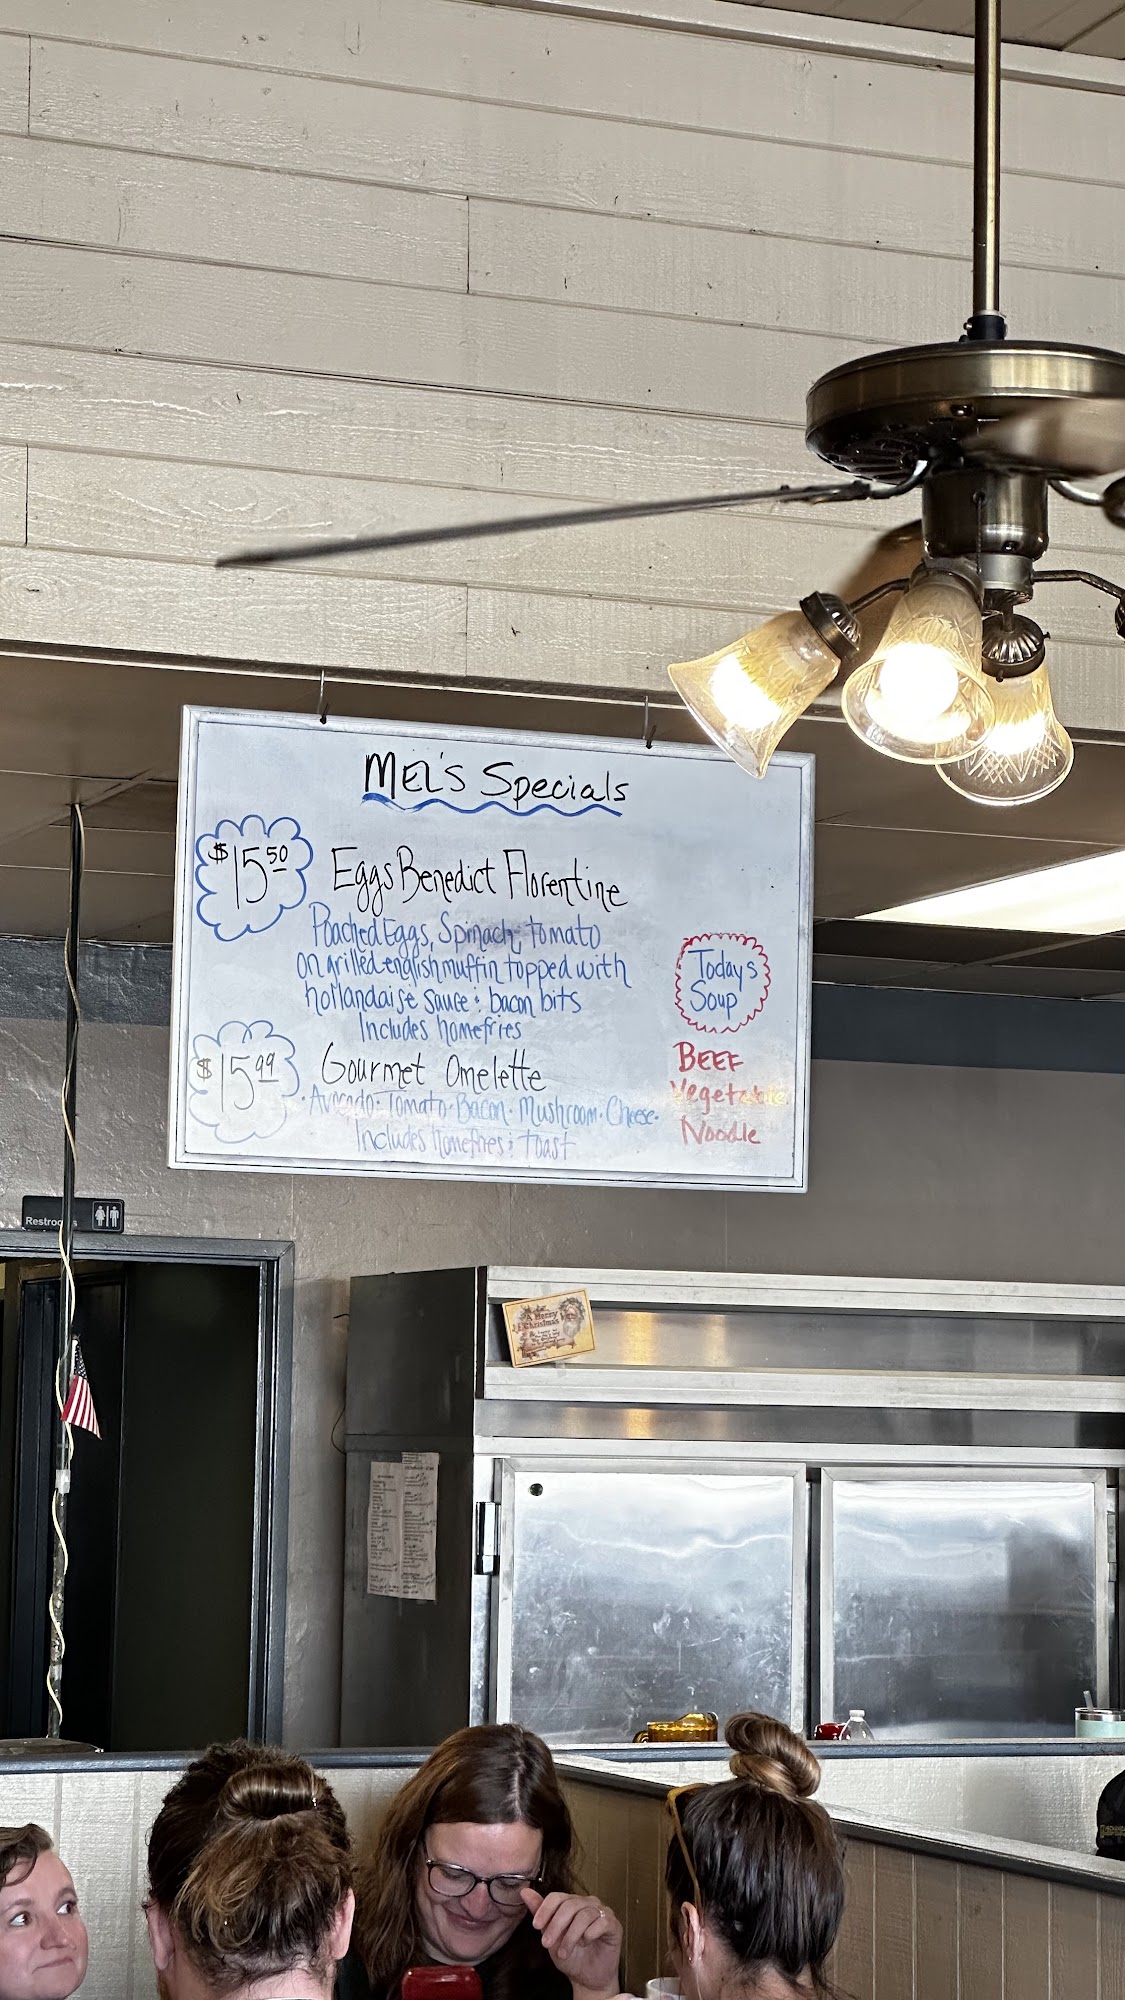 MEL'S Specials
$15.50
Eggs Benedict Florentine
Poached Eggs, Spinach, Tomato
on grilled english muffin topped with
hollandaise sauce & bacon bits
Includes homefries
$15.99
Gourmet Omelette
· Avocado · Tomato · Bacon · Mushroom · Cheese ·
Includes homefries & toast
Today's
Soup
BEEF
Vegetable
Noodle
Restrooms
A Merry
Christmas